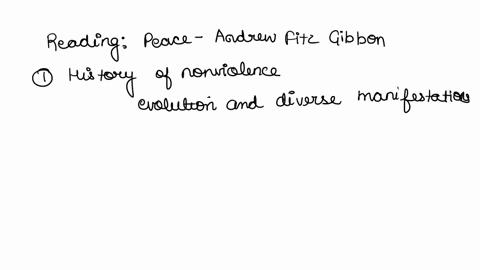 Reading: Peace - Andrew Fitz Gibbon
① History of nonviolence
evolution and diverse manifestations